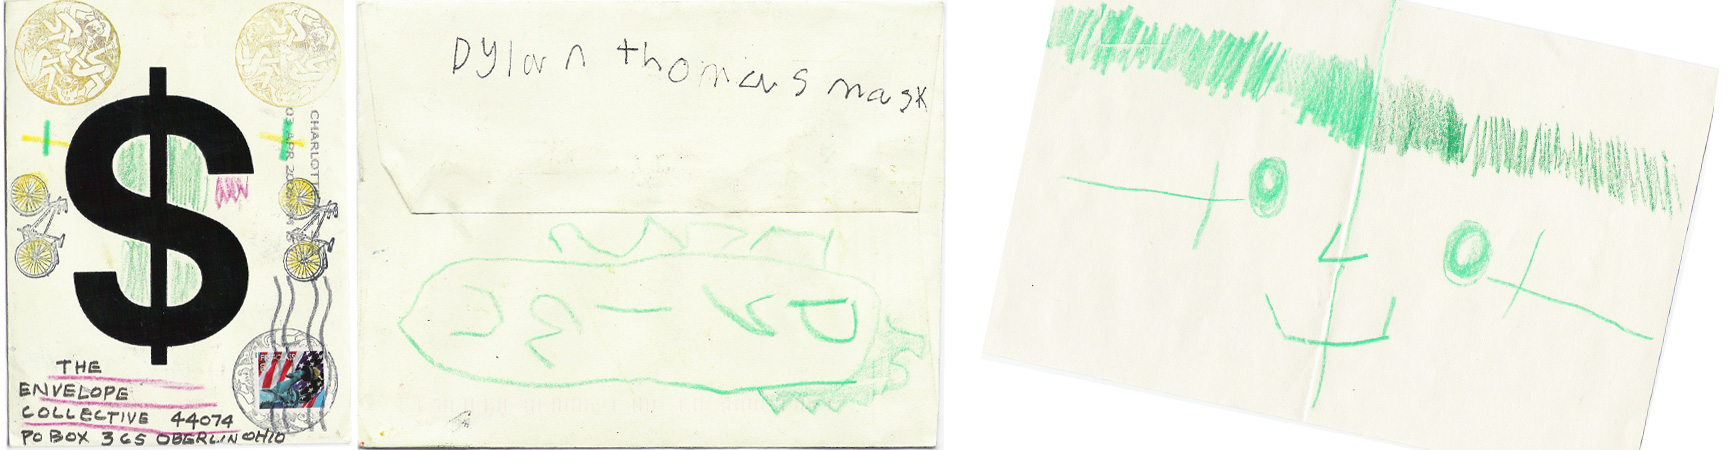 $
CHARLOTT
03 APR 20
THE
ENVELOPE
COLLECTIVE 44074
PO BOX 365 OBERLIN OHIO
Dylan thomas mask